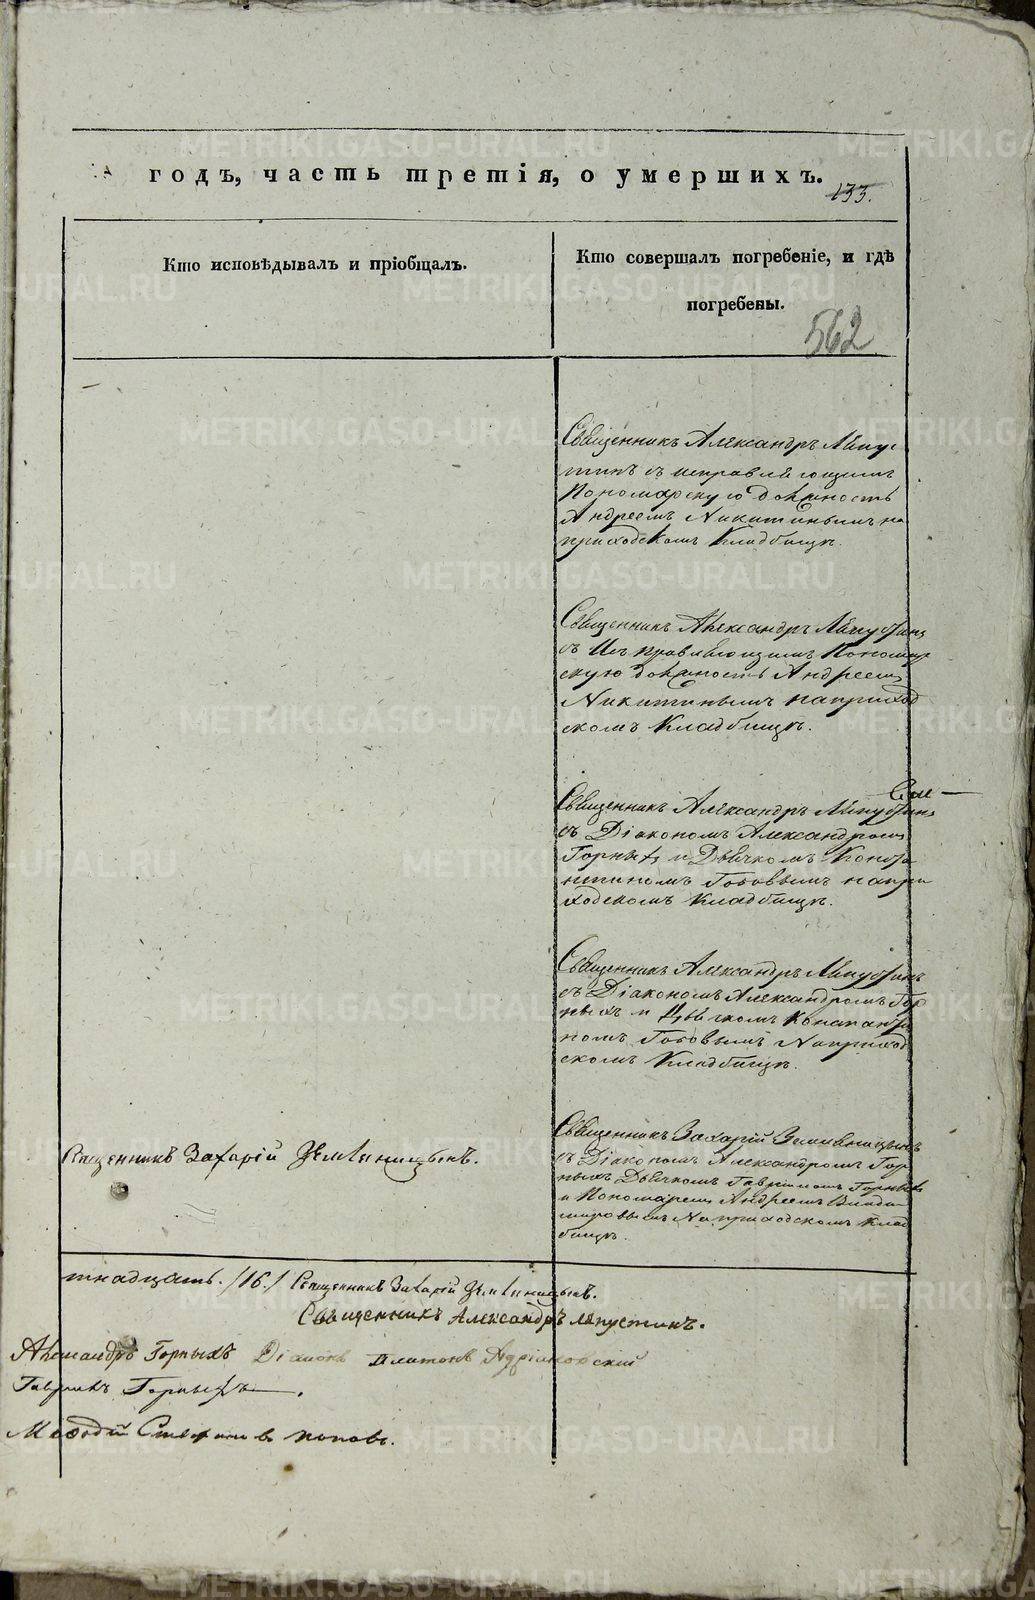 годъ, часть третія, о умершихъ.
133.
Кто исповѣдывалъ и пріобщалъ.
Кто совершалъ погребеніе, и гдѣ
погребены.
562
Священникъ Александръ Ляпус-
тинъ съ исправляющимъ
Пономарскую должность
Андреемъ Никитинымъ на
приходскомъ Кладбищѣ.
Священникъ Александръ Ляпустинъ
съ Исправляющимъ Пономар
скую должность Андреемъ
Никитинымъ на приход
скомъ Кладбищѣ.
Священникъ Александръ Ляпустинъ
съ Діакономъ Александромъ
Горныхъ и Дьячкомъ Конста
нтиномъ Поповымъ на при
ходскомъ Кладбищѣ.
Священникъ Александръ Ляпустинъ
съ Діакономъ Александромъ Гор
ныхъ и Дьячкомъ Констант
номъ Поповымъ На приход
скомъ Кладбищѣ.
Священникъ Захарій Земляницынъ
съ Діакономъ Александромъ Гор
ныхъ Дьячкомъ Гавріиломъ Горныхъ
и Пономаремъ Андреемъ Влади
мировымъ На приходскомъ Клад
бищѣ.
Священникъ Захарій Земляницынъ.
тнадцать. /16./ Священникъ Захарій Земляницынъ.
Священникъ Александръ Ляпустинъ.
Александръ Горныхъ Діаконъ Платонъ Адріановскій
Гавріилъ Горныхъ.
Меѳодій Стефановъ Поповъ.
METRIKI.GASO-URAL.RU